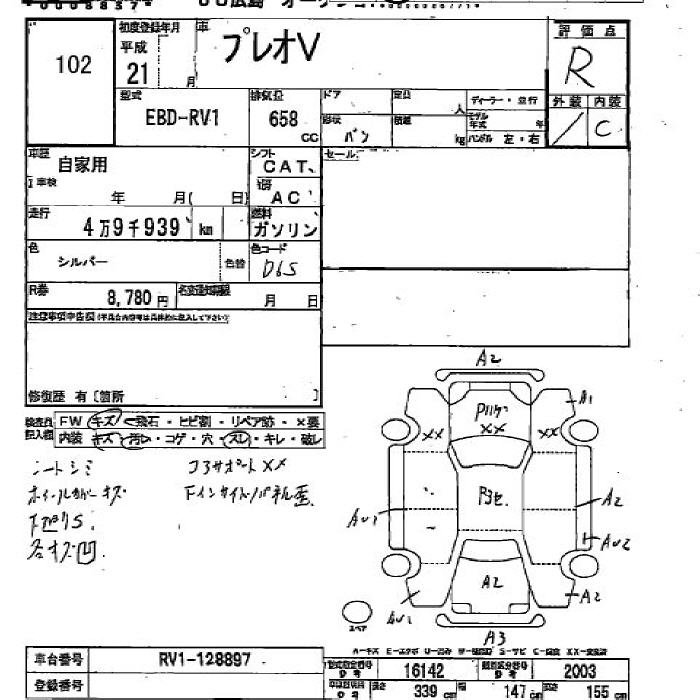 初度登録年月 車 評価点
102 平成 プレオV R
21 月
型式 排気量 ドア 定員 ディーラー・並行 外装 内装
EBD-RV1 658 cc 形状 バン 積載 人 kg モデル年式 年 ハンドル 左・右 / C
車歴 自家用 シフト CAT セール
車検 年 月( 日) AC
走行 4万9千939 km 燃料 ガソリン
色 シルバー 色替 色コード D6S
R券 8,780円 名変期限 月 日
修復歴 有〔箇所 〕
検査員記入欄 FW キズ・飛石・ヒビ割・リペア跡・×要
内装 キズ・汚れ・コゲ・穴・スレ・キレ・破レ
シートシミ コアサポートXX
ホイールカバーキズ Fインサイドパネル歪
下廻りS
各キズ凹
A2
A1
XX XX XX
AU1
A2
AU2
A2
AU1
A2
スペア
A3
車台番号 RV1-128897 型式指定番号 16142 類別区分番号 2003
登録番号 長さ 339 cm 幅 147 cm 高さ 155 cm